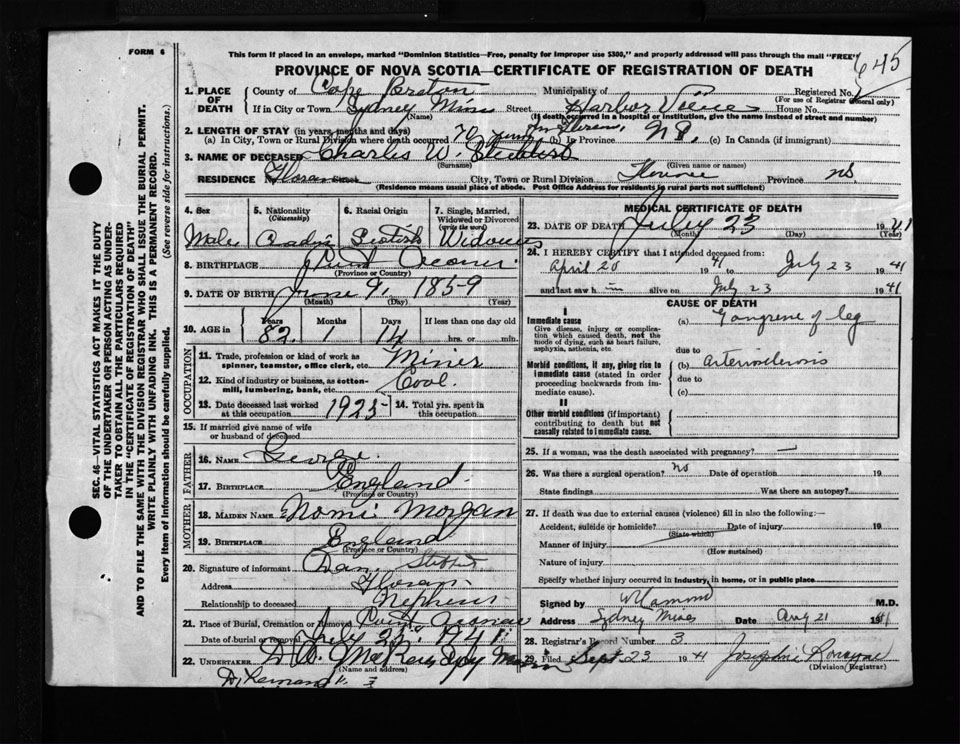 FORM 6
This form if placed in an envelope, marked "Dominion Statistics—Free, penalty for improper use $300," and properly addressed will pass through the mail "FREE"
645
PROVINCE OF NOVA SCOTIA—CERTIFICATE OF REGISTRATION OF DEATH
1. PLACE OF DEATH
County of Cape Breton Municipality of Registered No.
(For use of Registrar General only)
If in City or Town Sydney Mines Street Harbor View House No.
(Name) (If death occurred in a hospital or institution, give the name instead of street and number)
2. LENGTH OF STAY (in years, months and days)
(a) In City, Town or Rural Division where death occurred 70 (b) In Province N S. (c) In Canada (if immigrant)
3. NAME OF DECEASED Charles W.
(Surname) (Given name or names)
RESIDENCE Street City, Town or Rural Division Florence Province NS
(Residence means usual place of abode. Post Office Address for residents in rural parts not sufficient)
4. Sex
Male
5. Nationality (Citizenship)
6. Racial Origin
7. Single, Married, Widowed or Divorced (write the word)
8. BIRTHPLACE
(Province or Country)
9. DATE OF BIRTH June 9, 1859
(Month) (Day) (Year)
10. AGE in Years Months Days If less than one day old
82. 1 14 hrs. or min.
OCCUPATION
11. Trade, profession or kind of work as spinner, teamster, office clerk, etc. Miner
12. Kind of industry or business, as cotton-mill, lumbering, bank, etc. Coal.
13. Date deceased last worked at this occupation 1923
14. Total yrs. spent in this occupation
15. If married give name of wife or husband of deceased
FATHER
16. NAME George.
17. BIRTHPLACE England
(Province or Country)
MOTHER
18. MAIDEN NAME Nomi Morgan
19. BIRTHPLACE England
(Province or Country)
20. Signature of informant Dan
Address
Relationship to deceased Nephew
21. Place of Burial, Cremation or Removal
Date of burial or removal July 1941
22. UNDERTAKER
(Name and address)
MEDICAL CERTIFICATE OF DEATH
23. DATE OF DEATH July 23 1941
(Month) (Day) (Year)
24. I HEREBY CERTIFY that I attended deceased from:
April 20 1941 to July 23 1941
and last saw h im alive on July 23 1941
CAUSE OF DEATH
I
Immediate cause (a) Gangrene of leg
Give disease, injury or complication which caused death, not the mode of dying, such as heart failure, asphyxia, asthenia, etc.
due to
Morbid conditions, if any, giving rise to immediate cause (stated in order proceeding backwards from immediate cause). (b) arteriosclerosis
due to
(c)
II
Other morbid conditions (if important) contributing to death but not causally related to immediate cause.
25. If a woman, was the death associated with pregnancy? —
26. Was there a surgical operation? no Date of operation 19
State findings Was there an autopsy?
27. If death was due to external causes (violence) fill in also the following:—
Accident, suicide or homicide? Date of injury 19
(State which)
Manner of injury
(How sustained)
Nature of injury
Specify whether injury occurred in industry, in home, or in public place
Signed by M.D.
Address Sydney Mines Date Aug 21 1941
28. Registrar's Record Number 3
29. Filed Sept. 23 1941 Josephine
(Division Registrar)
SEC. 46—VITAL STATISTICS ACT MAKES IT THE DUTY
OF THE UNDERTAKER OR PERSON ACTING AS UNDER-
TAKER TO OBTAIN ALL THE PARTICULARS REQUIRED
IN THE "CERTIFICATE OF REGISTRATION OF DEATH"
AND TO FILE THE SAME WITH THE DIVISION REGISTRAR WHO SHALL ISSUE THE BURIAL PERMIT.
WRITE PLAINLY WITH UNFADING INK. THIS IS A PERMANENT RECORD.
Every item of information should be carefully supplied. (See reverse side for instructions.)